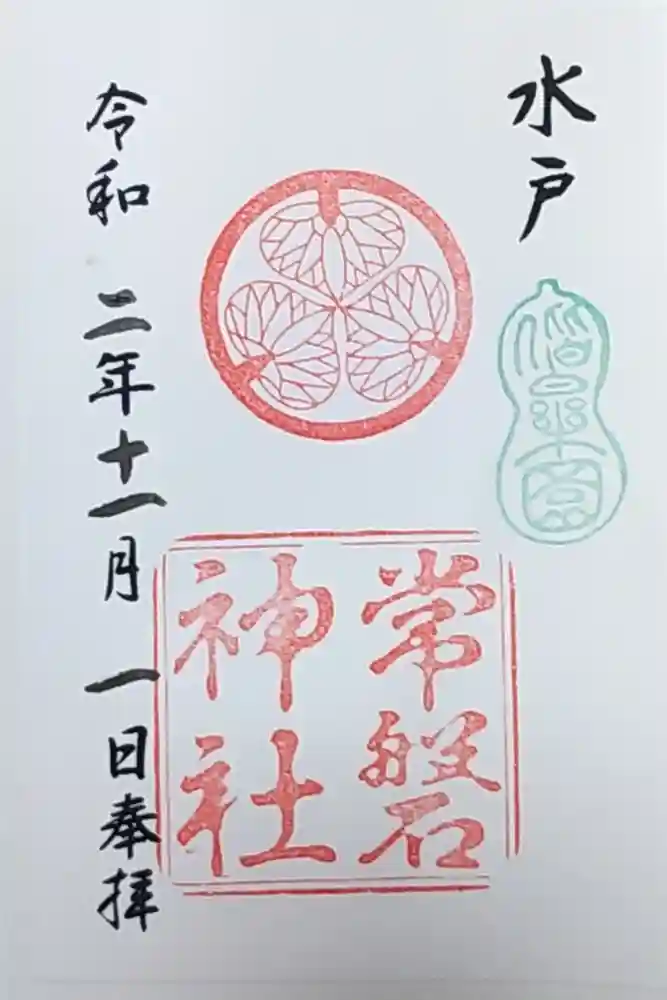 水戸
偕楽園
常磐
神社
令和二年十一月一日奉拝